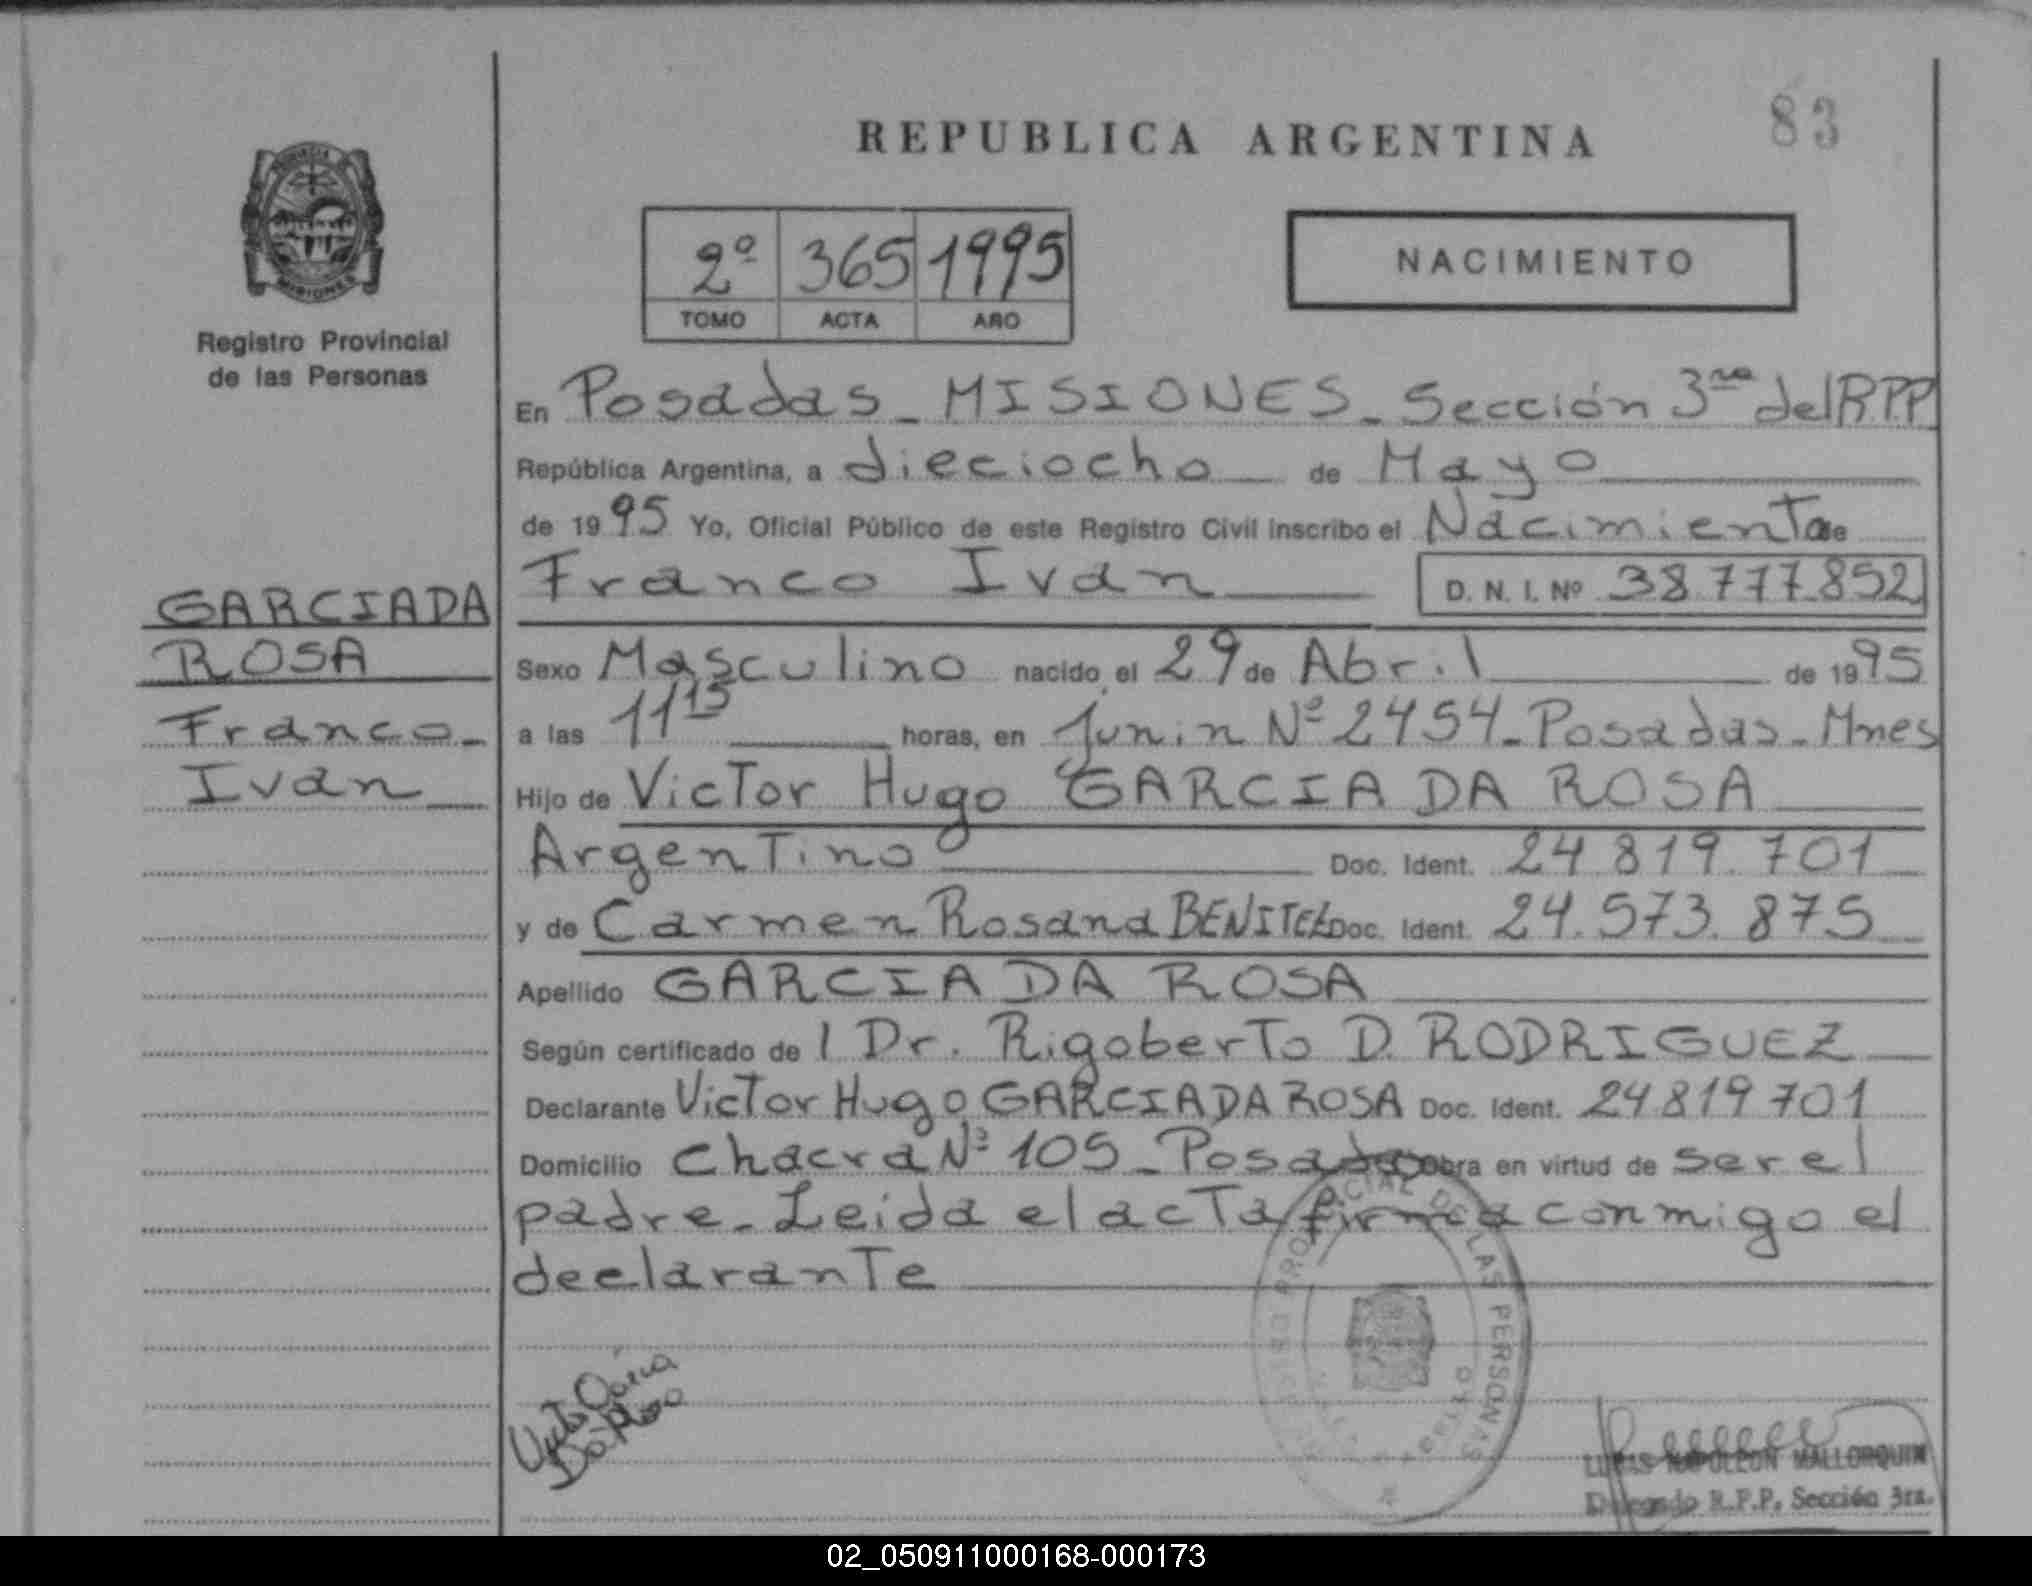 REPUBLICA ARGENTINA
83
PROVINCIA DE
MISIONES
Registro Provincial
de las Personas
2º 365 1995
TOMO ACTA AÑO
NACIMIENTO
En Posadas - MISIONES - Sección 3ra del R.P.P
República Argentina, a dieciocho de Mayo
de 1995 Yo, Oficial Público de este Registro Civil inscribo el Nacimiento de
Franco Ivan D. N. I. Nº 38.777.852
GARCIA DA
ROSA
Franco
Ivan
Sexo Masculino nacido el 29 de Abril de 1995
a las 11 15 horas, en Junin Nº 2454 - Posadas - Mnes
Hijo de Victor Hugo GARCIA DA ROSA
Argentino Doc. Ident. 24.819.701
y de Carmen Rosana BENITEZ Doc. Ident. 24.573.875
Apellido GARCIA DA ROSA
Según certificado del Dr. Rigoberto D. RODRIGUEZ
Declarante Victor Hugo GARCIA DA ROSA Doc. Ident. 24819701
Domicilio Chacra Nº 105 - Posadas Obra en virtud de ser el
padre - Leida el acta firma conmigo el
declarante
DE LAS PERSONAS
Garcia
Da Rosa
LUCAS NAPOLEON MALLORQUIN
Delegado R.P.P. Sección 3ra.
02_050911000168-000173